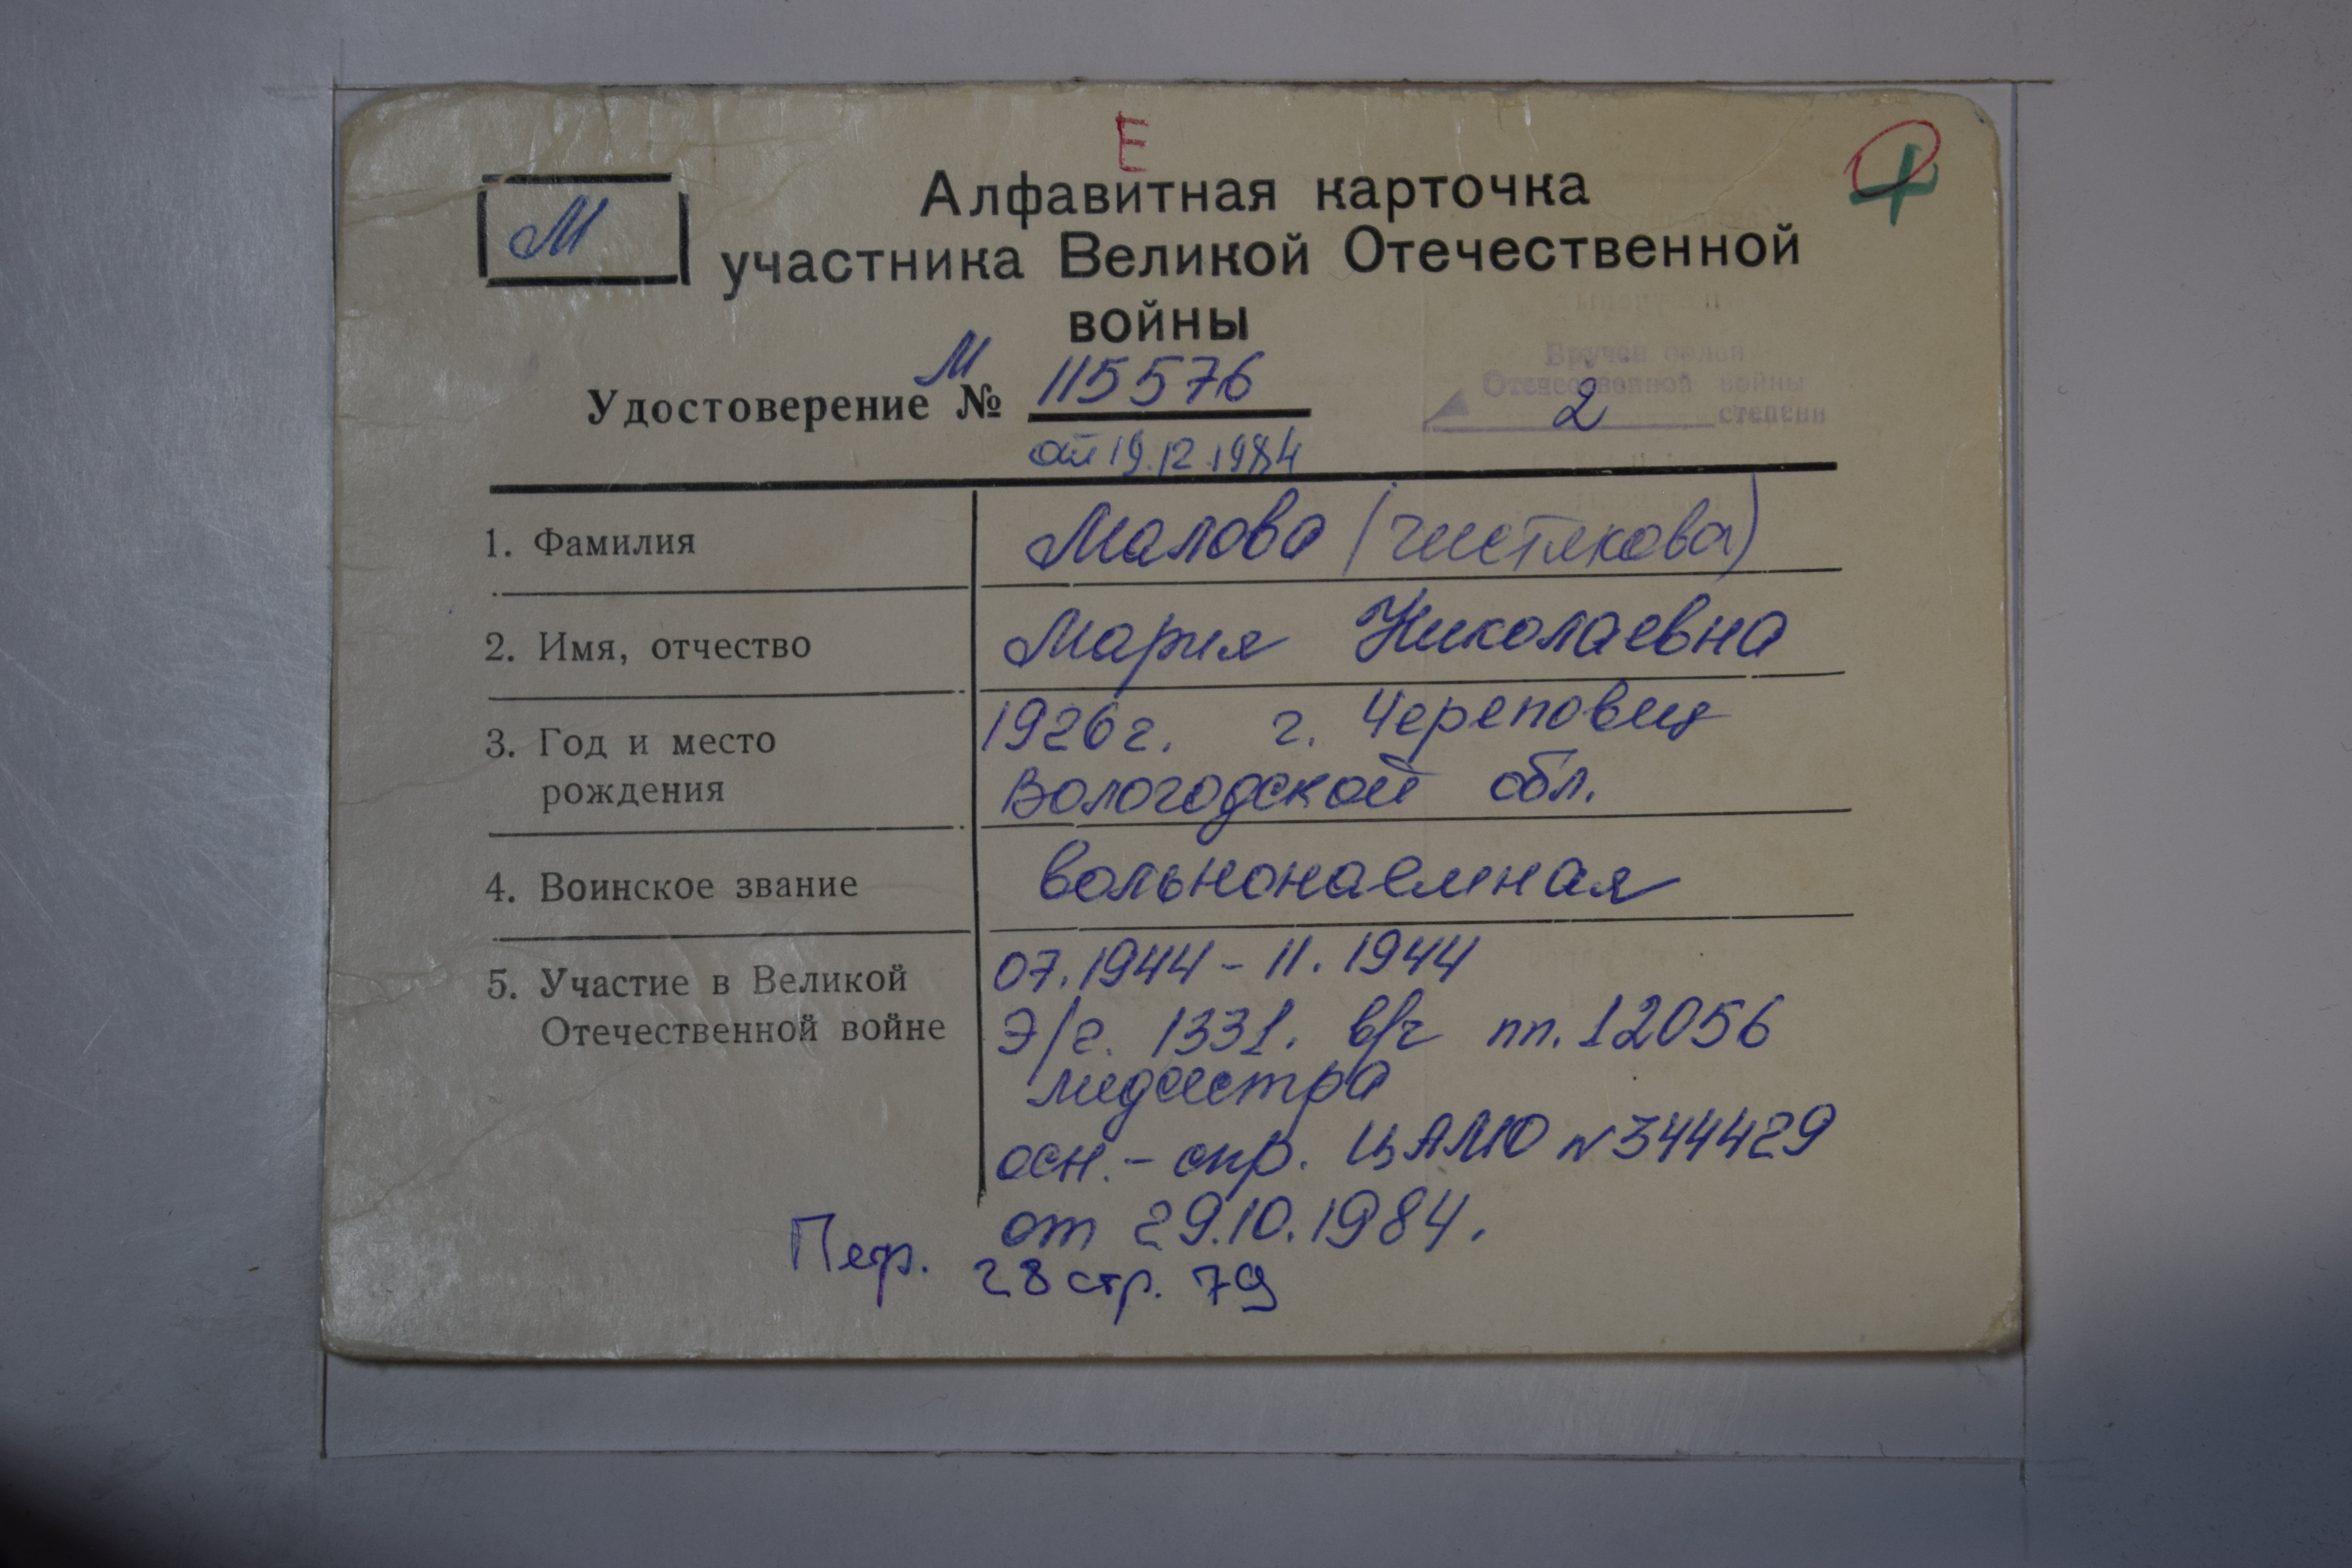 Е
М
Алфавитная карточка
участника Великой Отечественной
войны
Удостоверение М № 115576
от 19.12.1984
Вручен орден
Отечественной войны
2 степени
1. Фамилия
Малова (Чистякова)
2. Имя, отчество
Мария Николаевна
3. Год и место
рождения
1926г. г. Череповец
Вологодской обл.
4. Воинское звание
вольнонаемная
5. Участие в Великой
Отечественной войне
07.1944 - 11.1944
Э/г. 1331. в/ч пп. 12056
медсестра
осн. - спр. ЦАМО №344429
от 29.10.1984.
28 стр. 79